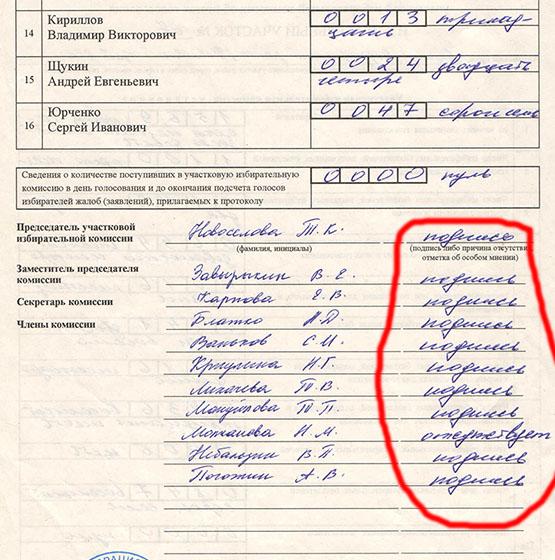 14 Кириллов Владимир Викторович 0 0 1 3 тринад-
цать
15 Щукин Андрей Евгеньевич 0 0 2 4 двадцать
четыре
16 Юрченко Сергей Иванович 0 0 4 7 сорок семь
Сведения о количестве поступивших в участковую избирательную
комиссию в день голосования и до окончания подсчета голосов
избирателей жалоб (заявлений), прилагаемых к протоколу
0 0 0 0 нуль
Председатель участковой
избирательной комиссии Новоселова Т. К. подпись
(фамилия, инициалы) (подпись либо причина отсутствия,
отметка об особом мнении)
Заместитель председателя
комиссии Завырыкин В. Е. подпись
Секретарь комиссии Карпова Е. В. подпись
Члены комиссии Блатко Н. Д. подпись
Ваньков С. И. подпись
Н. Г. подпись
Лихачева Т. В. подпись
Т. П. подпись
Молчанова Н. М. отсутствует
В. П. подпись
А. В. подпись